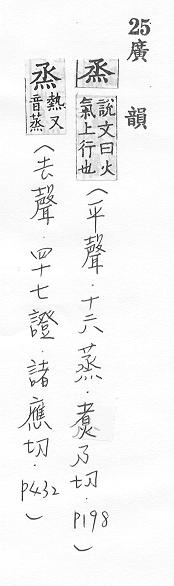 25廣韻
烝 說文曰火氣上行也（平聲．十六蒸．煑仍切．P198）
烝 熱又音蒸（去聲．四十七證．諸應切．P432）